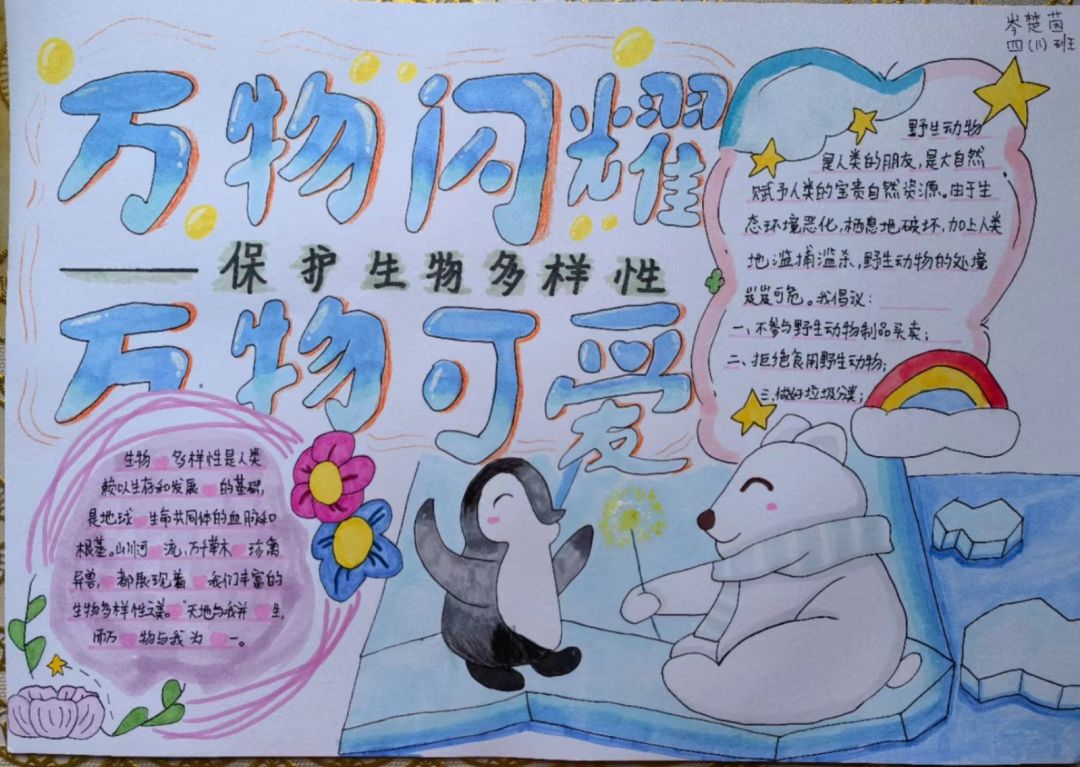 岑楚茵
四(八)班
万物闪耀
——保护生物多样性
万物可爱
野生动物
是人类的朋友，是大自然
赋予人类的宝贵自然资源。由于生
态环境恶化，栖息地破坏，加上人类
地滥捕滥杀，野生动物的处境
岌岌可危。我倡议：
一、不参与野生动物制品买卖；
二、拒绝食用野生动物；
三、做好垃圾分类；
生物多样性是人类
赖以生存和发展的基础，
是地球生命共同体的血脉和
根基。山川河流，万千草木，珍禽
异兽，都展现着我们丰富的
生物多样性之美。“天地与我并生，
而万物与我为一。